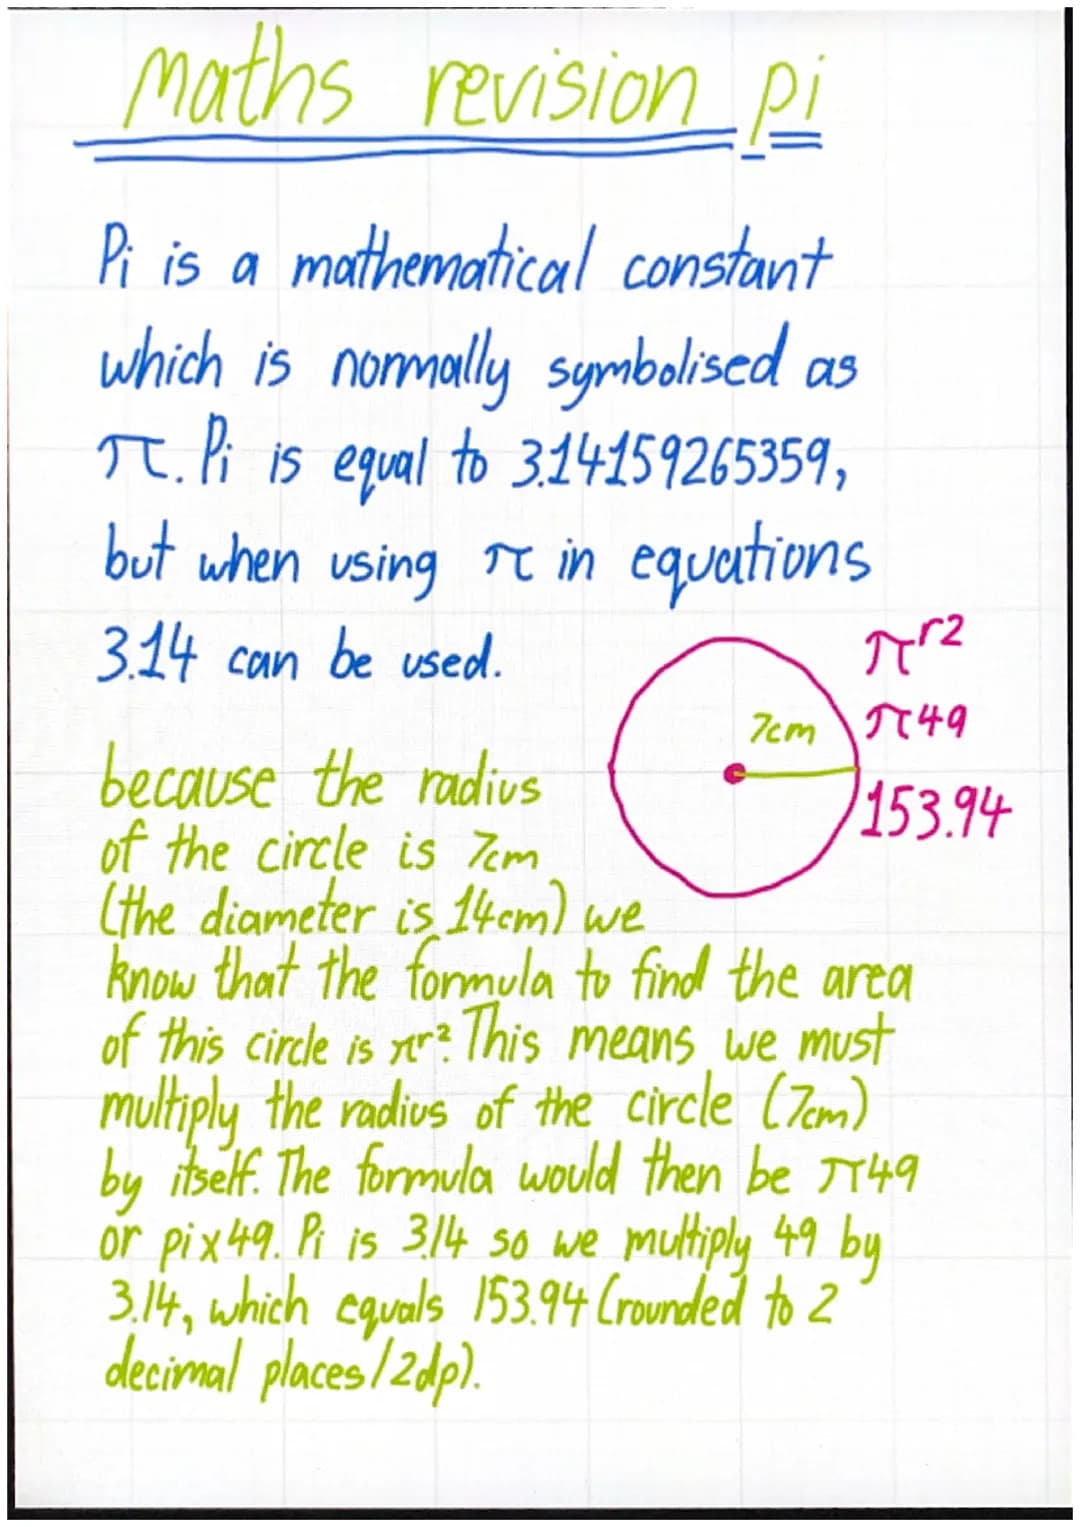 Maths revision pi
Pi is a mathematical constant
which is normally symbolised as
π. Pi is equal to 3.14159265359,
but when using π in equations
3.14 can be used.
πr2
7cm
π49
153.94
because the radius
of the circle is 7cm
(the diameter is 14cm) we
know that the formula to find the area
of this circle is πr². This means we must
multiply the radius of the circle (7cm)
by itself. The formula would then be π49
or pix49. Pi is 3.14 so we multiply 49 by
3.14, which equals 153.94 (rounded to 2
decimal places/2dp).